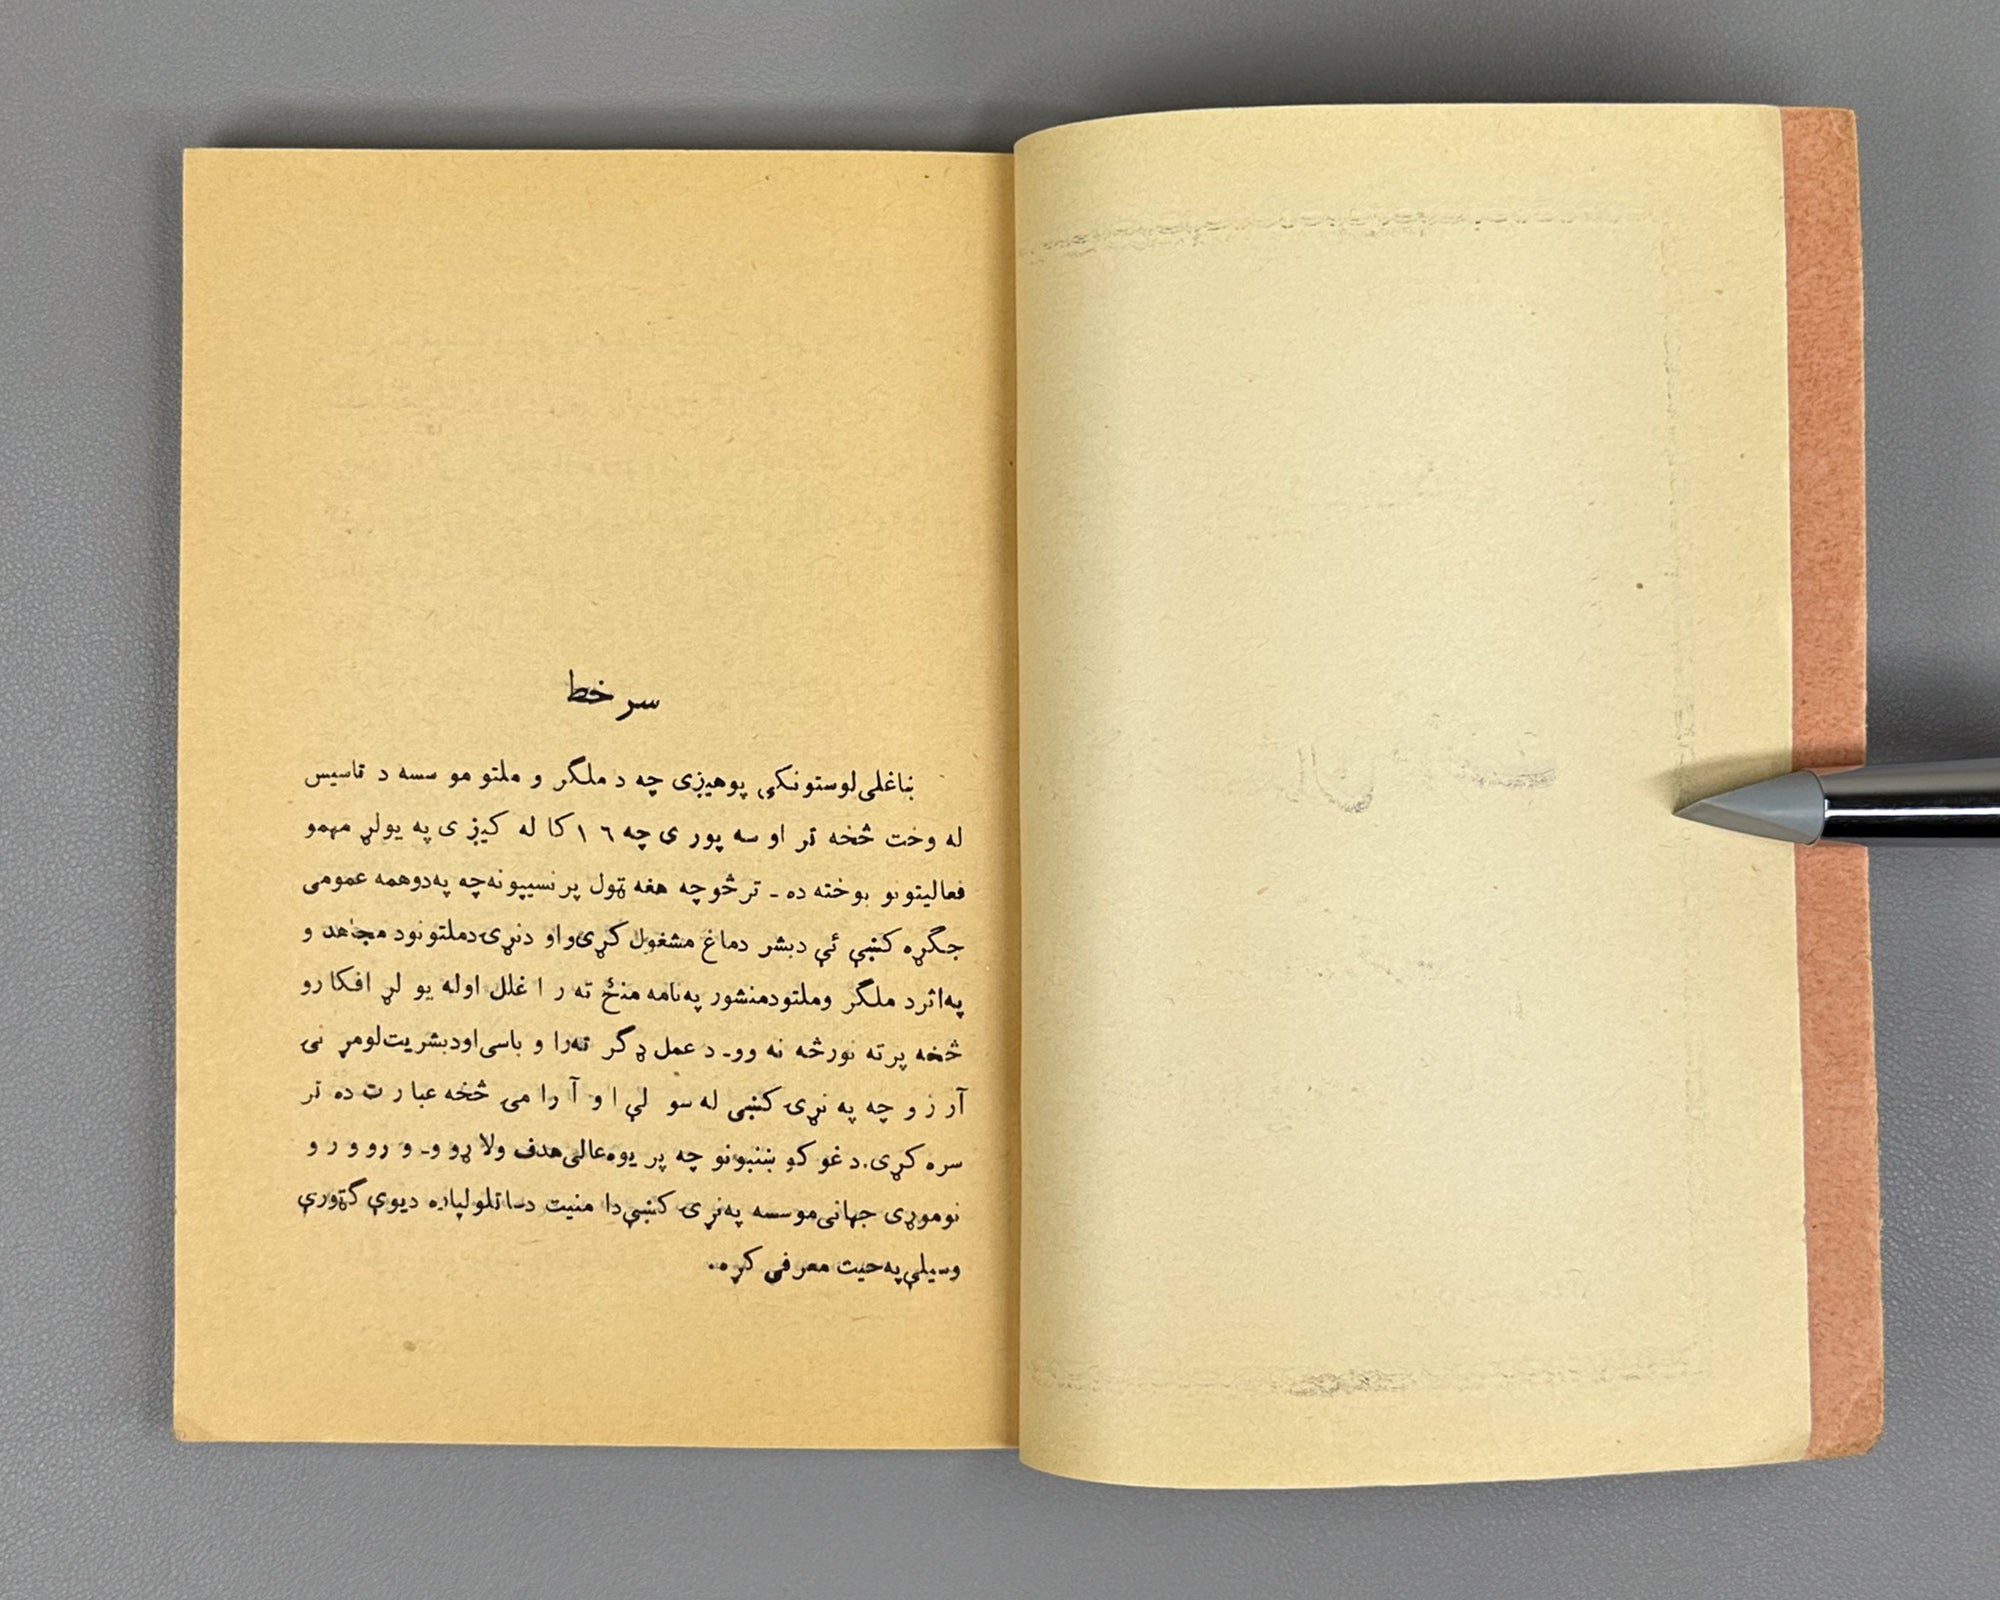 سر خط
ښاغلی لوستونکي پوهیږی چه د ملگر و ملتو مو سسه د تاسیس
له وخت څخه تر او سه پور ی چه ١٦ کا له کیږ ی په یولړ مهمو
فعالیتونو بوخته ده ـ تر څو چه هغه ټول پر نسیپونه چه په دوهمه عمومی
جگړه کښي ئي د بشر دماغ مشغول کړی واو دنړۍ دملتونود مجاهد و
په اثرد ملگر وملتودمنشور په نامه منځ ته ر ا غلل اوله یو لړ افکا رو
څخه پرته نورڅه نه وو۔ د عمل ډگر ته را و باسی اودبشریت لومړ نۍ
آر ز و چه په نړۍ کښي له سو لي ا و آ را مۍ څخه عبا ر ت ده تر
سره کړی. د غو کو ښښونو چه پر یوه عالی هدف ولا ړو و۔ و رو و ر و
نوموړی جهانی موسسه په نړۍ کښي دا منیت دساتلولپاره دیوې گټورې
وسیلې په حیث معرفي کړه.